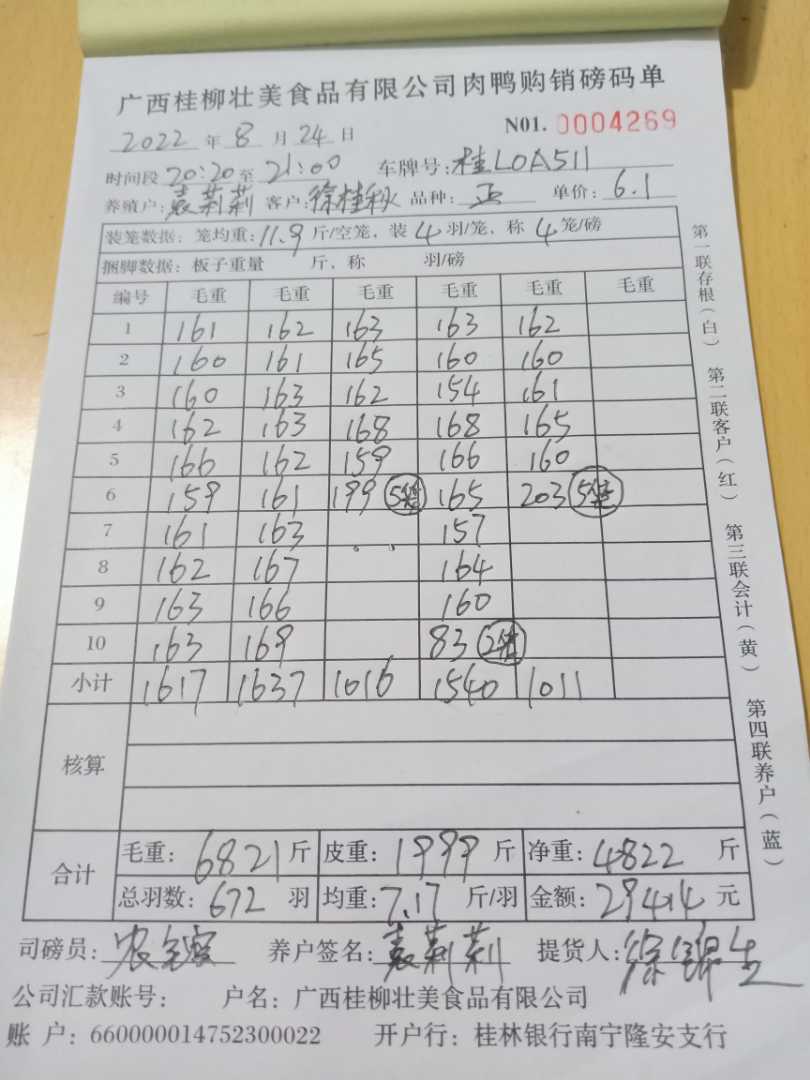 广西桂柳壮美食品有限公司肉鸭购销磅码单
2022 年 8 月 24 日 N01. 0004269
时间段 20:20 至 21:00 车牌号: 桂L0A511
养殖户: 袁莉莉 客户: 徐桂秋 品种: 正 单价: 6.1
装笼数据: 笼均重: 11.9 斤/空笼, 装 4 羽/笼, 称 4 笼/磅
捆脚数据: 板子重量 斤, 称 羽/磅
编号 毛重 毛重 毛重 毛重 毛重 毛重
1 161 162 163 163 162
2 160 161 165 160 160
3 160 163 162 154 161
4 162 163 168 168 165
5 166 162 159 166 160
6 159 161 199 5笼 165 203 5笼
7 161 163 157
8 162 167 164
9 163 166 160
10 163 169 83 2笼
小计 1617 1637 1016 1540 1011
核算
合计
毛重: 6821 斤 皮重: 1999 斤 净重: 4822 斤
总羽数: 672 羽 均重: 7.17 斤/羽 金额: 29414 元
司磅员: 养户签名: 袁莉莉 提货人: 徐
公司汇款账号: 户名: 广西桂柳壮美食品有限公司
账 户: 660000014752300022 开户行: 桂林银行南宁隆安支行
第一联存根(白) 第二联客户(红) 第三联会计(黄) 第四联养户(蓝)